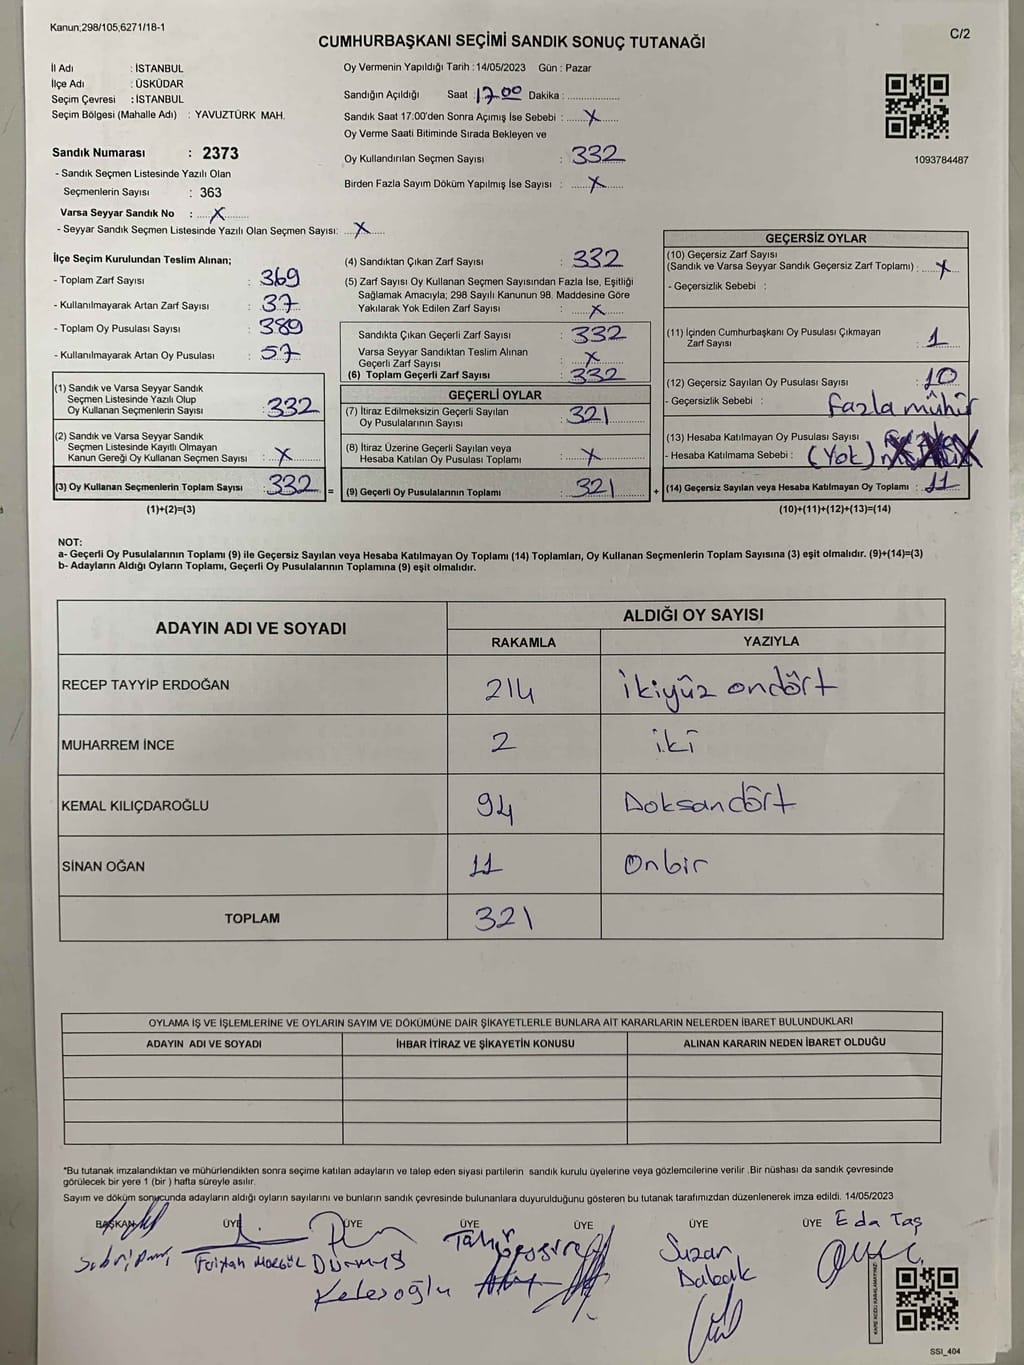 Kanun;298/105,6271/18-1
C/2
CUMHURBAŞKANI SEÇİMİ SANDIK SONUÇ TUTANAĞI
İl Adı : İSTANBUL
İlçe Adı : ÜSKÜDAR
Seçim Çevresi : İSTANBUL
Seçim Bölgesi (Mahalle Adı) : YAVUZTÜRK MAH.
Sandık Numarası : 2373
- Sandık Seçmen Listesinde Yazılı Olan
Seçmenlerin Sayısı : 363
Varsa Seyyar Sandık No : X
- Seyyar Sandık Seçmen Listesinde Yazılı Olan Seçmen Sayısı: X
Oy Vermenin Yapıldığı Tarih : 14/05/2023 Gün : Pazar
Sandığın Açıldığı Saat : 17.00 Dakika :
Sandık Saat 17:00'den Sonra Açımış İse Sebebi : X
Oy Verme Saati Bitiminde Sırada Bekleyen ve
Oy Kullandırılan Seçmen Sayısı : 332
Birden Fazla Sayım Döküm Yapılmış İse Sayısı : X
1093784487
İlçe Seçim Kurulundan Teslim Alınan;
- Toplam Zarf Sayısı : 369
- Kullanılmayarak Artan Zarf Sayısı : 37
- Toplam Oy Pusulası Sayısı : 389
- Kullanılmayarak Artan Oy Pusulası : 57
(1) Sandık ve Varsa Seyyar Sandık
Seçmen Listesinde Yazılı Olup
Oy Kullanan Seçmenlerin Sayısı : 332
(2) Sandık ve Varsa Seyyar Sandık
Seçmen Listesinde Kayıtlı Olmayan
Kanun Gereği Oy Kullanan Seçmen Sayısı : X
(3) Oy Kullanan Seçmenlerin Toplam Sayısı : 332 =
(1)+(2)=(3)
(4) Sandıktan Çıkan Zarf Sayısı : 332
(5) Zarf Sayısı Oy Kullanan Seçmen Sayısından Fazla İse, Eşitliği
Sağlamak Amacıyla; 298 Sayılı Kanunun 98. Maddesine Göre
Yakılarak Yok Edilen Zarf Sayısı : X
Sandıkta Çıkan Geçerli Zarf Sayısı : 332
Varsa Seyyar Sandıktan Teslim Alınan
Geçerli Zarf Sayısı : X
(6) Toplam Geçerli Zarf Sayısı : 332
GEÇERLİ OYLAR
(7) İtiraz Edilmeksizin Geçerli Sayılan
Oy Pusulalarının Sayısı : 321
(8) İtiraz Üzerine Geçerli Sayılan veya
Hesaba Katılan Oy Pusulası Toplamı : X
(9) Geçerli Oy Pusulalarının Toplamı : 321 +
GEÇERSİZ OYLAR
(10) Geçersiz Zarf Sayısı
(Sandık ve Varsa Seyyar Sandık Geçersiz Zarf Toplamı) : X
- Geçersizlik Sebebi :
(11) İçinden Cumhurbaşkanı Oy Pusulası Çıkmayan
Zarf Sayısı : 1
(12) Geçersiz Sayılan Oy Pusulası Sayısı : 10
- Geçersizlik Sebebi : fazla mühür
(13) Hesaba Katılmayan Oy Pusulası Sayısı
- Hesaba Katılmama Sebebi : (Yok)
(14) Geçersiz Sayılan veya Hesaba Katılmayan Oy Toplamı : 11
(10)+(11)+(12)+(13)=(14)
NOT:
a- Geçerli Oy Pusulalarının Toplamı (9) ile Geçersiz Sayılan veya Hesaba Katılmayan Oy Toplamı (14) Toplamları, Oy Kullanan Seçmenlerin Toplam Sayısına (3) eşit olmalıdır. (9)+(14)=(3)
b- Adayların Aldığı Oyların Toplamı, Geçerli Oy Pusulalarının Toplamına (9) eşit olmalıdır.
ADAYIN ADI VE SOYADI
ALDIĞI OY SAYISI
RAKAMLA YAZIYLA
RECEP TAYYİP ERDOĞAN 214 ikiyüz ondört
MUHARREM İNCE 2 iki
KEMAL KILIÇDAROĞLU 94 Doksandört
SİNAN OĞAN 11 Onbir
TOPLAM 321
OYLAMA İŞ VE İŞLEMLERİNE VE OYLARIN SAYIM VE DÖKÜMÜNE DAİR ŞİKAYETLERLE BUNLARA AİT KARARLARIN NELERDEN İBARET BULUNDUKLARI
ADAYIN ADI VE SOYADI İHBAR İTİRAZ VE ŞİKAYETİN KONUSU ALINAN KARARIN NEDEN İBARET OLDUĞU
*Bu tutanak imzalandıktan ve mühürlendikten sonra seçime katılan adayların ve talep eden siyasi partilerin sandık kurulu üyelerine veya gözlemcilerine verilir .Bir nüshası da sandık çevresinde
görülecek bir yere 1 (bir ) hafta süreyle asılır.
Sayım ve döküm sonucunda adayların aldığı oyların sayılarını ve bunların sandık çevresinde bulunanlara duyurulduğunu gösteren bu tutanak tarafımızdan düzenlenerek imza edildi. 14/05/2023
BAŞKAN ÜYE ÜYE ÜYE ÜYE ÜYE ÜYE Eda Taş
DURMUŞ
Keleşoğlu
Suzan
Dabak
SSI_404